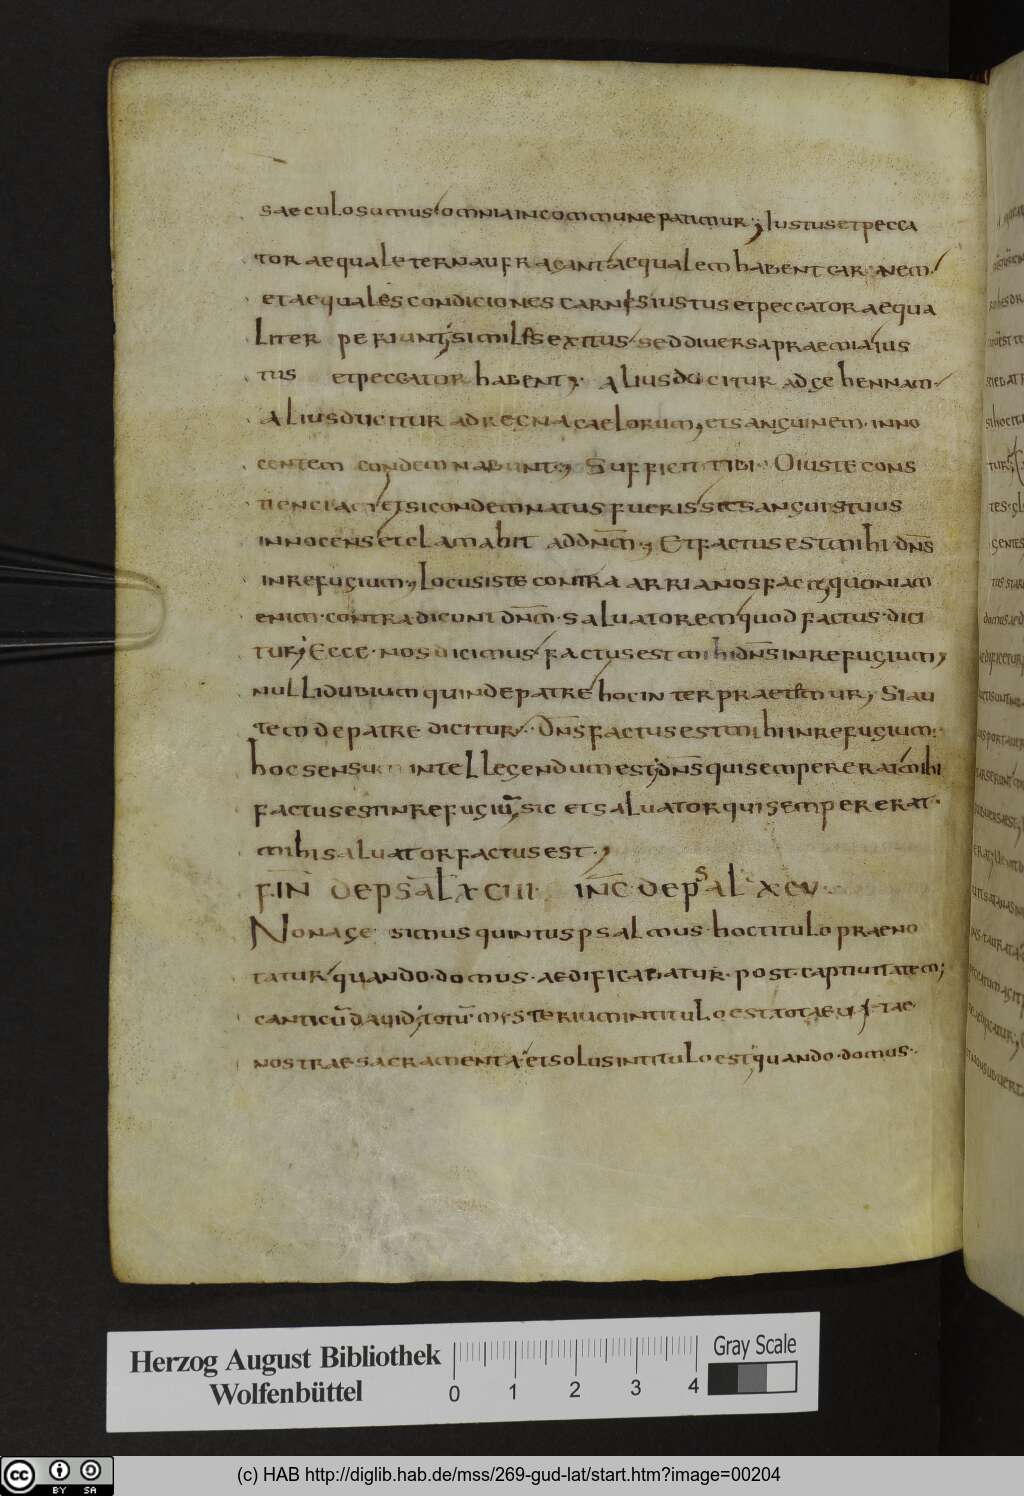 saeculo sumus omnia in commune patimur; Iustus et pecca
tor aequaliter naufragant aequalem habent carnem.
et aequales condiciones carnis iustus et peccator aequa
liter pereunt; similis exitus sed diuersa praemia ius
tus et peccator habent; Alius ducitur ad gehennam
alius ducitur ad regna caelorum, et sanguinem. inno
centem condemnabunt; Sufficit tibi. O iuste cons
cientia et si condemnatus fueris sic sanguis tuus
innocens et clamabit ad dn̄m; Et factus est mihi dn̄s
in refugium; Locus iste contra arrianos facit quoniam
enim. contradicunt dn̄m. saluatorem quod factus. dici
tur; Ecce. nos dicimus factus est mihi dn̄s in refugium,
nulli dubium quin de patre hoc interpraetamur, Si au
tem de patre dicitur. Dn̄s factus est mihi in refugium:
hoc sensum intellegendum est; dn̄s qui semper erat mihi
factus est in refugiū, sic et saluator qui semper erat.
mihi saluator factus est.
FIN̄ DE PSAL̄ XCIII. IN̄C DE PSAL̄ XCV.
Nonagesimus quintus psalmus. hoc titulo praeno
tatur quando. domus. aedificabatur. post. captiuitatem;
canticū dauid; totū mysterium in titulo est, tota euitae
nostrae sacramenta et solus in titulo est; quando. domus.
Herzog August Bibliothek
Wolfenbüttel
0 1 2 3 4
Gray Scale
cc BY SA
(c) HAB http://diglib.hab.de/mss/269-gud-lat/start.htm?image=00204